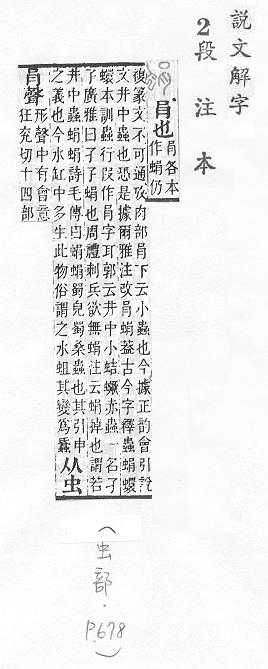 說文解字
2段注本
蜎
肙也
肙各本
作蜎仍
復篆文不可通攷肉部肙下云小蟲也今據正韵會引說
文井中蟲也恐是據爾雅注改肙蜎葢古今字釋蟲蜎蠉
蠉本訓蟲行叚作肙字耳郭云井中小蛣蟩赤蟲一名孑
孓廣雅曰孑孓蜎也周禮刺兵欲無蜎注云蜎掉也謂若
井中蟲蜎蜎詩毛傳曰蜎蜎蜀皃蜀桑蟲也其引申
之義也今水缸中多生此物俗謂之水蛆其變為蟁
从虫
肙聲
形聲中有會意
狂兖切十四部
(虫部.P.678)